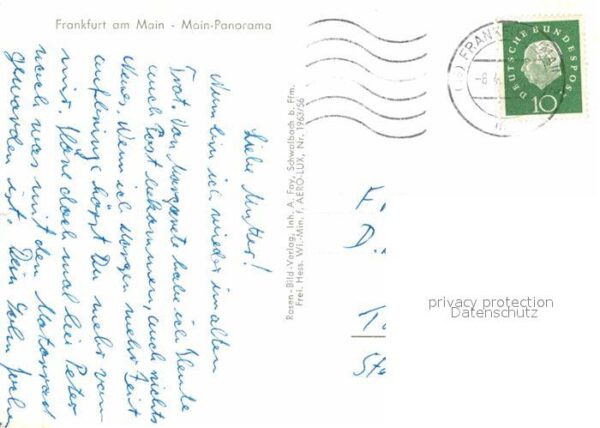 Frankfurt am Main - Main-Panorama
Liebe Mutter!
Nun bin ich wieder im alten
Trott. Von Margarete habe ich Heute
auch Post bekommen, auch nichts
Neues. Wenn ich Morgen mehr Zeit
hörst Du mehr von
mir. Höre doch mal bei Peter
nach was mit dem Motorrad
geworden ist. Dein Sohn
Rosen-Bild-Verlag, Inh. A. Fay, Schwalbach b. Ffm.
Frei. Hess. Wi.-Min. f. AERO-LUX, Nr. 1963/56
FRANK
MAIN
-8.
DEUTSCHE BUNDESPOST
10
F.
D.
K
St
privacy protection
Datenschutz